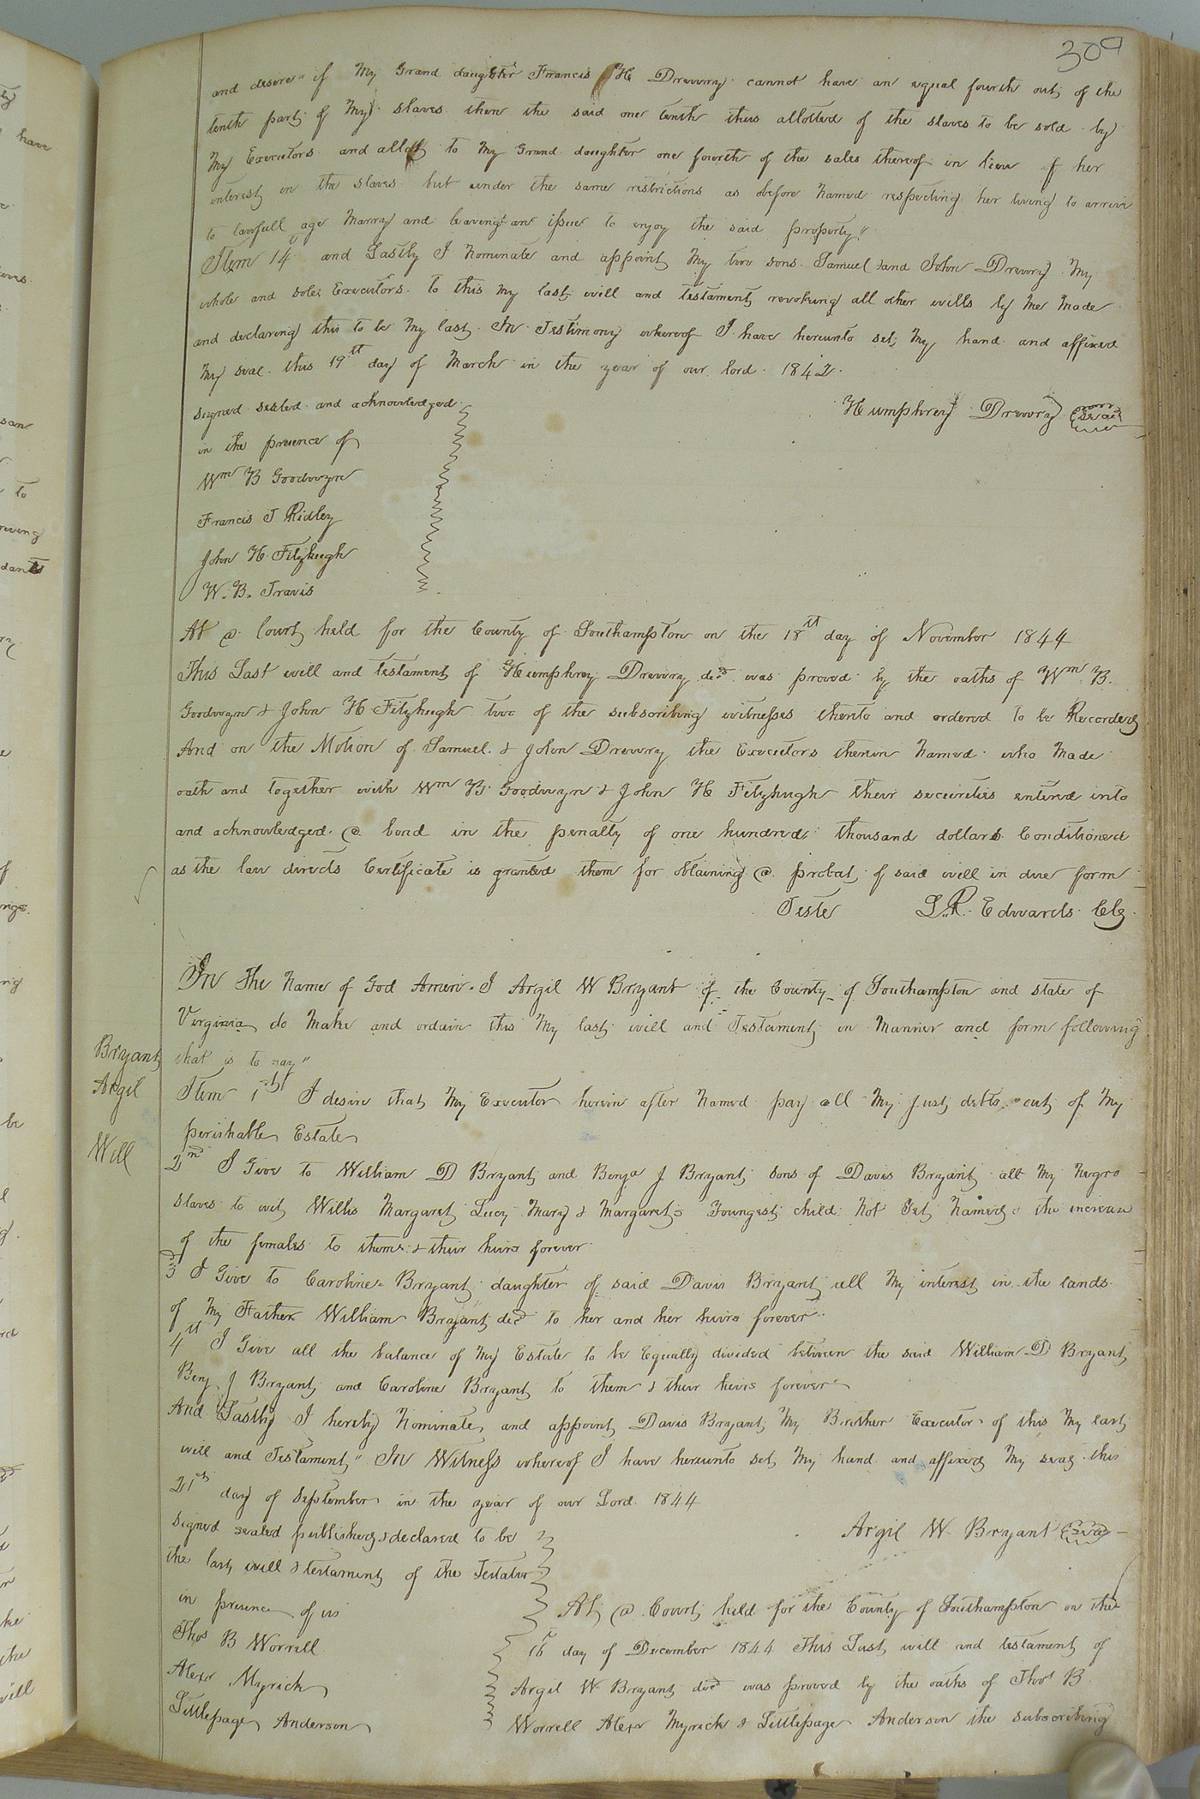 309
and desire if My Grand daughter Francis H Drewry cannot have an equal fourth out of the
tenth part of My slaves then the said one tenth thus allotted of the slaves to be sold by
My Executors and allott to My Grand daughter one fourth of the sales thereof in lieu of her
interest in the slaves but under the same restrictions as before Named respecting her living to arrive
to lawfull age Marry and leaving an issue to enjoy the said property"
Item 14th and Lastly I Nominate and appoint My two sons Samuel and John Drewry My
whole and sole Executors to this My last will and testament revoking all other wills by Me Made
and declaring this to be My last. In Testimony whereof I have hereunto set My hand and affixed
My seal this 19th day of March in the year of our lord 1842.
Humphrey Drewry seal
signed sealed and acknowledged
in the presence of
Wm B Goodwyn
Francis T Ridley
John H Fitzhugh
W. B. Travis
At a Court held for the County of Southampton on the 18th day of November 1844
This Last will and testament of Humphrey Drewry decd was proved by the oaths of Wm B.
Goodwyn & John H Fitzhugh two of the subscribing witnesses thereto and ordered to be Recorded
And on the Motion of Samuel & John Drewry the Executors therein Named who Made
oath and together with Wm B Goodwyn & John H Fitzhugh their securities entered into
and acknowledged a bond in the penalty of one hundred thousand dollars Conditioned
as the law directs Certificate is granted them for obtaining a probat of said will in due form
Teste L. R. Edwards Clk.
Bryant
Argil
Will
In The Name of God Amen. I Argil W Bryant of the County of Southampton and state of
Virginia do Make and ordain this My last will and Testament in Manner and form following
that is to say"
Item 1st I desire that My Executor herein after Named pay all My just debts out of My
perishable Estate
2nd I Give to William D Bryant and Benja J Bryant sons of Davis Bryant all My Negro
slaves to wit Willis Margaret Lucy Mary & Margarets Youngest child Not Yet Named & the increase
of the females to them & their heirs forever
3d I Give to Caroline Bryant daughter of said Davis Bryant all My interest in the lands
of My Father William Bryant decd to her and her heirs forever
4th I Give all the balance of My Estate to be Equally divided between the said William D Bryant
Benj J Bryant and Caroline Bryant to them & their heirs forever
And Lastly I hereby Nominate and appoint Davis Bryant My Brother Executor of this My last
will and Testament" In Witness whereof I have hereunto set My hand and affixed My seal this
21st day of September in the year of our Lord 1844
Argil W. Bryant seal
signed sealed published & declared to be
the last will & testament of the Testator
in presence of us
Thos B Worrell
Alexr Myrick
Littlepage Anderson
At a Court held for the County of Southampton on the
16 day of December 1844 This Last will and testament of
Argil W Bryant decd was proved by the oaths of Thos B
Worrell Alexr Myrick & Littlepage Anderson the subscribing